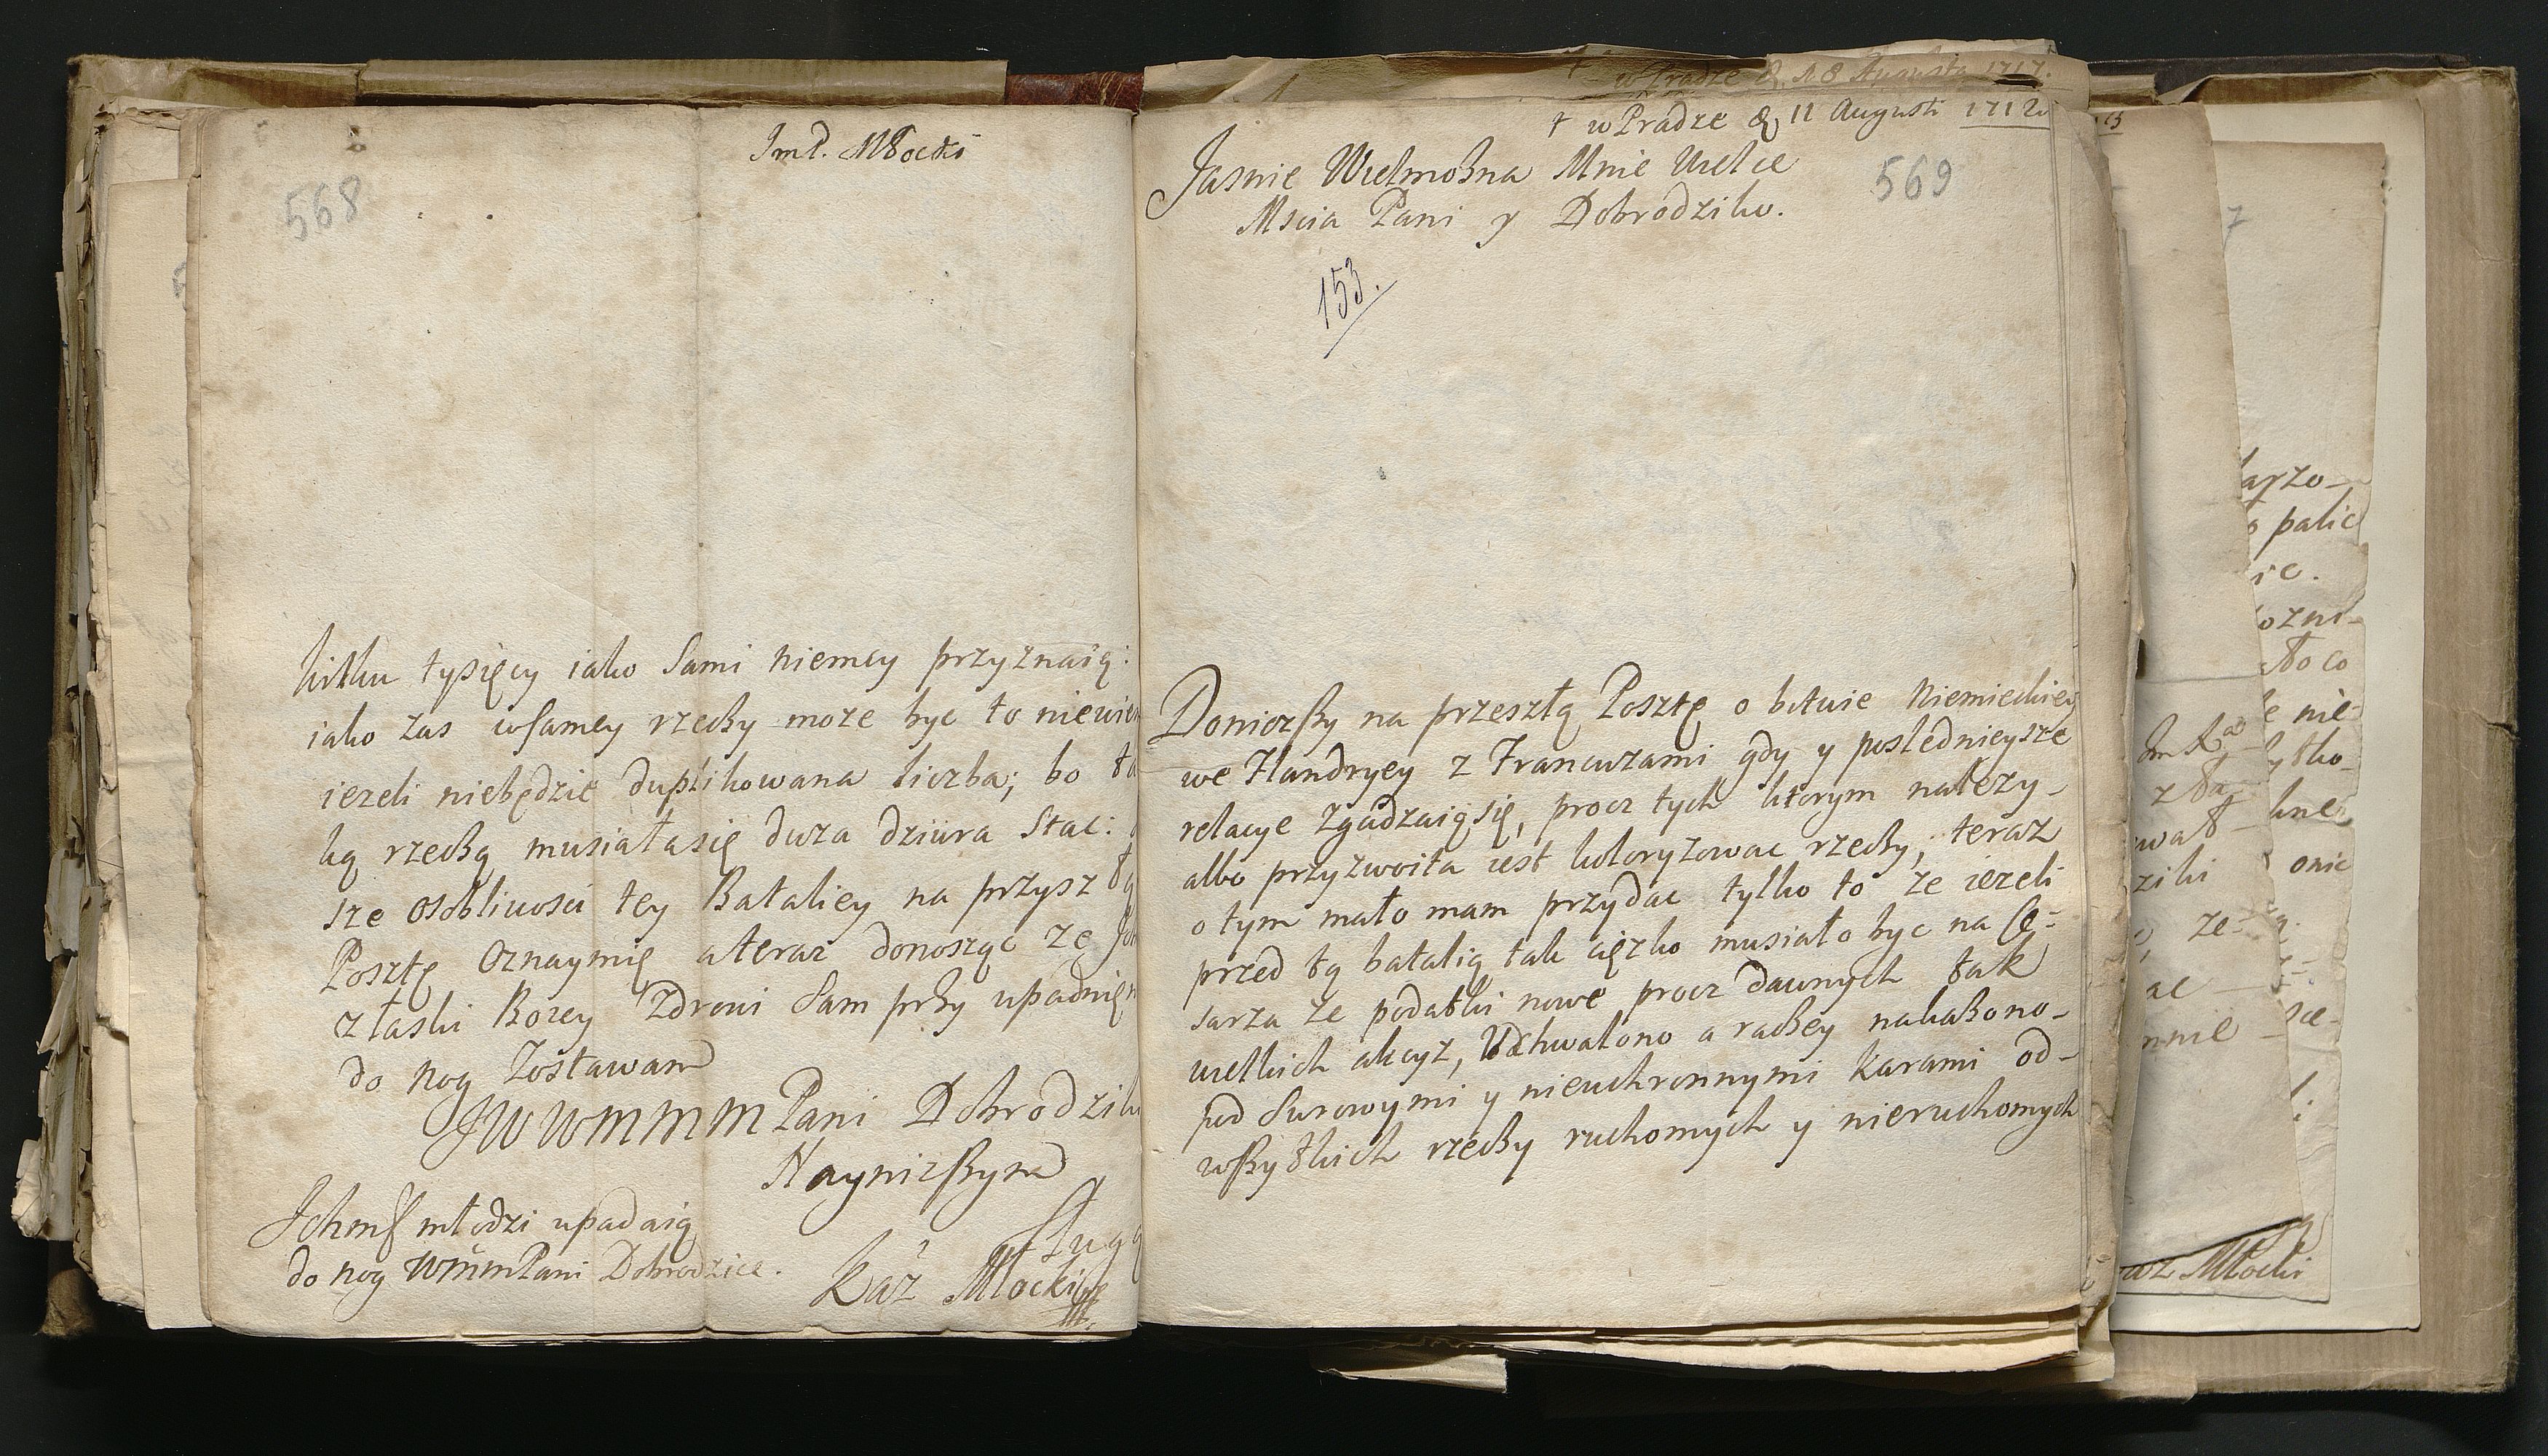 Jmp. Młocki
568
kilku tysięcy iako Sami niemcy przyznaią:
iako zas wsamey rzeczy moze byc to niewiem
iezeli niebędzie duplikowana liczba; bo ta
ką rzeczą musiałasię duza dziura Stac:
sze osobliwosci tey Bataliey na przyszłą
Posztę Oznaymię ateraz donosząc ze Jch
z łaski Bozey Zdrowi Sam przy upadnięn
do nog Zostawam
JWWMMM Pani Dobrodziki
Nayniższym
Sługą
Kaz Młocki
Jchmſ młodzi upadaią
do nog WmmPani Dobrodzice.
w Pradze 18 Augusta 1717.
† w Pradze d 11 Augusti 1712
569
Jasnie Wielmożna Mnie Wielce
Mscia Pani y Dobrodziko.
153.
Doniozszy na przeszłą Posztę o bitwie Niemieckiey
we Flandryey z Francuzami gdy y poslednieysze
relacye zgadzaiąsię, procz tych ktorym nalezy-
albo przyzwoita iest koloryzowac rzeczy, teraz
o tym mało mam przydac tylko to ze iezeli
przed tą batalią tak cięzko musiało byc na Ce-
sarza ze podatki nowe procz dawnych tak
wielkich akcyz, Uchwalono a raczey nakazono-
pod Surowymi y nieuchronnymi Karami od-
wszytkich rzeczy ruchomych y nieruchomych
palic
Młocki